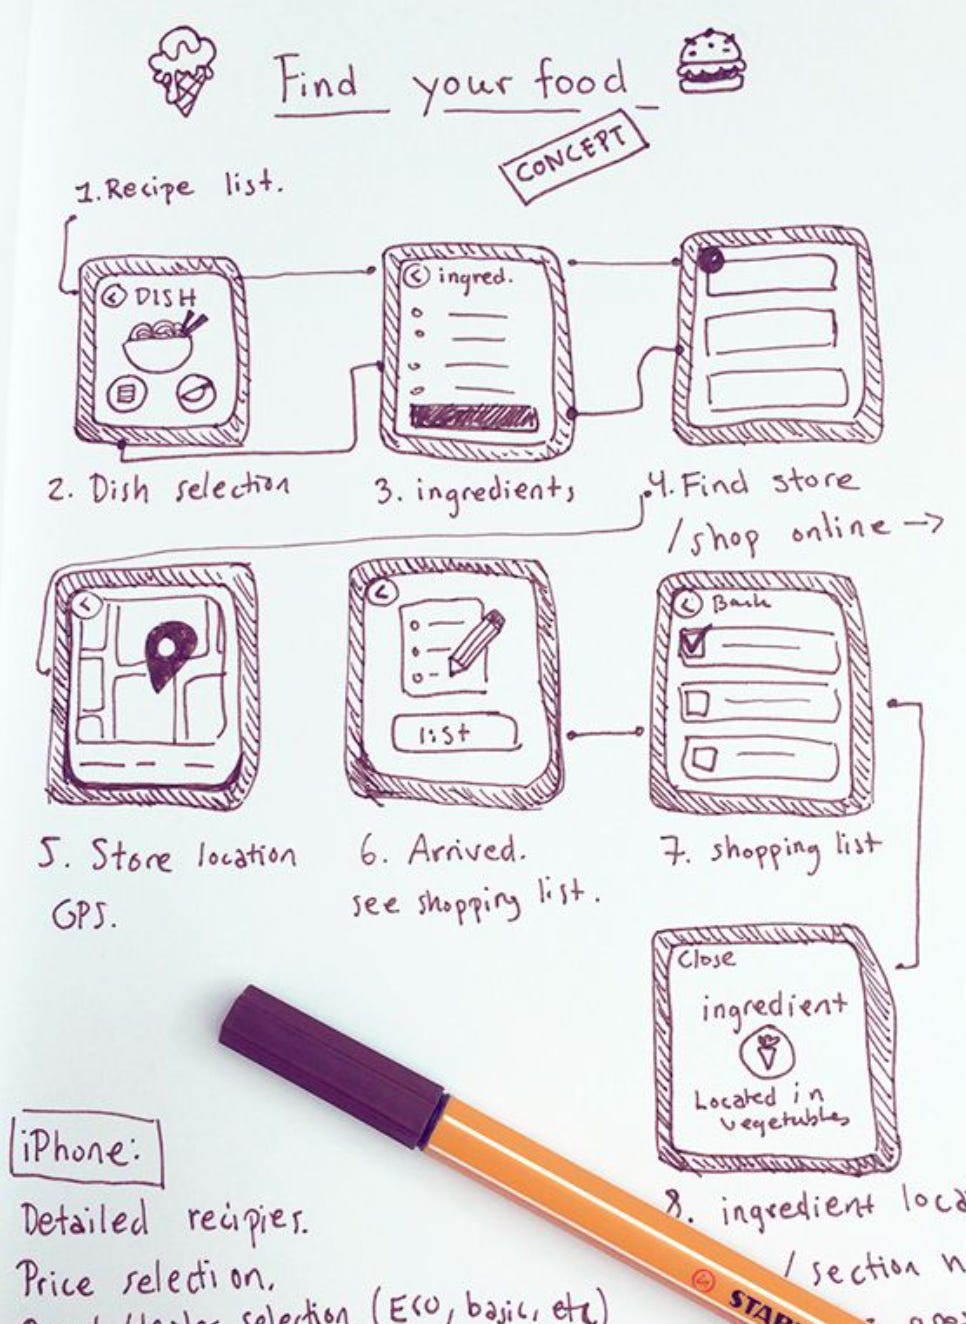 Find your food
CONCEPT
1. Recipe list.
DISH
ingred.
2. Dish selection
3. ingredients
4. Find store
/shop online →
Back
list
5. Store location
GPS.
6. Arrived.
see shopping list.
7. shopping list
Close
ingredient
Located in
vegetables
iPhone:
Detailed recipies.
Price selection.
selection (Eco, basic, etc)
8. ingredient loca
/ section n
STAB